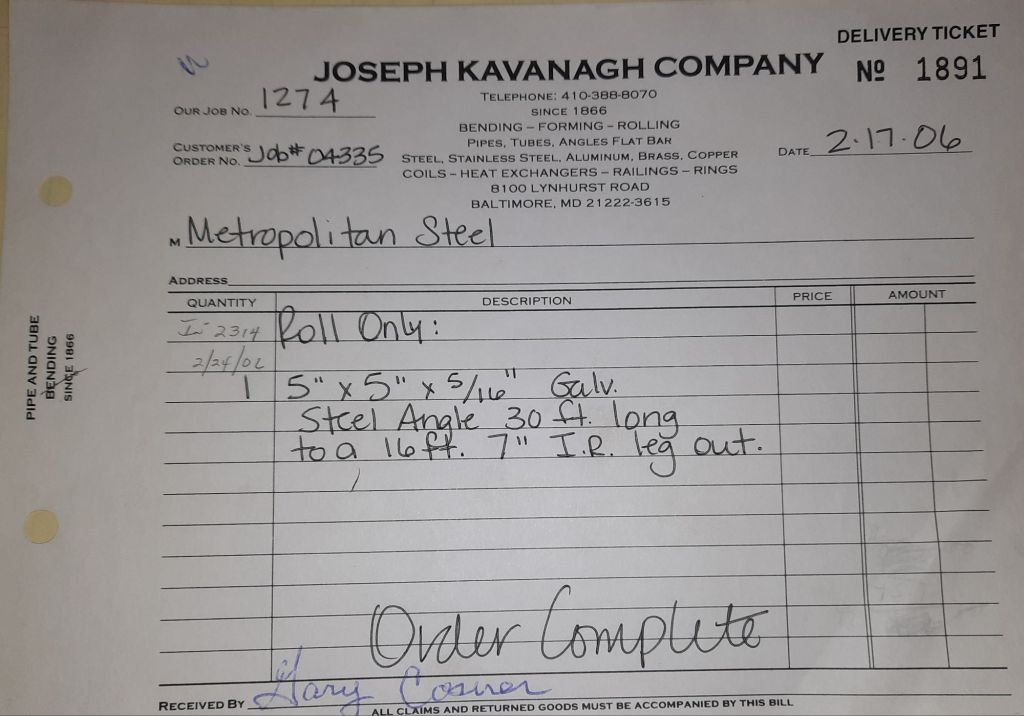 DELIVERY TICKET
JOSEPH KAVANAGH COMPANY
Nº 1891
OUR JOB NO. 1274
TELEPHONE: 410-388-8070
SINCE 1866
BENDING – FORMING – ROLLING
PIPES, TUBES, ANGLES FLAT BAR
CUSTOMER'S
ORDER NO. Job# 04335
STEEL, STAINLESS STEEL, ALUMINUM, BRASS, COPPER
DATE 2.17.06
COILS – HEAT EXCHANGERS – RAILINGS – RINGS
8100 LYNHURST ROAD
BALTIMORE, MD 21222-3615
M Metropolitan Steel
ADDRESS
QUANTITY DESCRIPTION PRICE AMOUNT
2314 Roll Only:
2/24/06
1 5" x 5" x 5/16" Galv.
Steel Angle 30 ft. long
to a 16 ft. 7" I.R. leg out.
Order Complete
RECEIVED BY Gary
ALL CLAIMS AND RETURNED GOODS MUST BE ACCOMPANIED BY THIS BILL
PIPE AND TUBE
BENDING
SINCE 1866